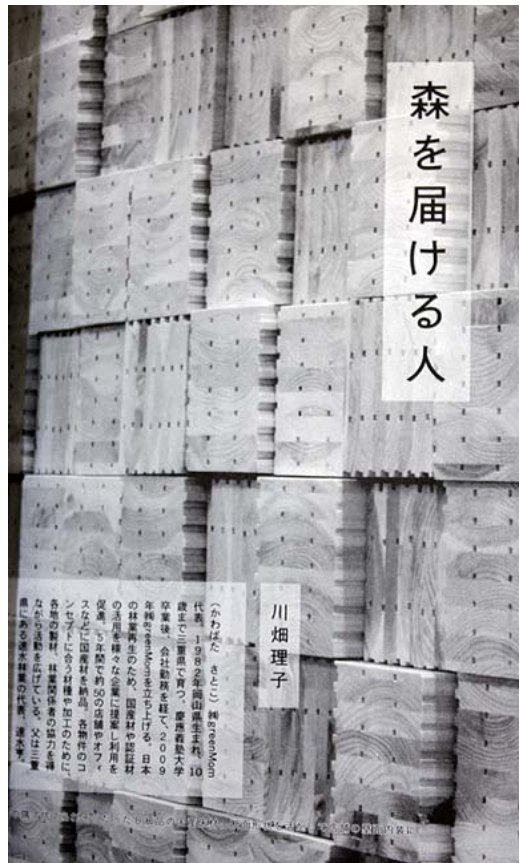 森を届ける人
川畑理子
(かわばた さとこ) ㈱greenMom
代表。1982年岡山県生まれ、10
歳まで三重県で育つ。慶應義塾大学
卒業後、会社勤務を経て、2009
年㈱greenMomを立ち上げる。日本
の林業再生のため、国産材や認証材
の活用を様々な企業に提案し利用を
促進。5年間で約50の店舗やオフィ
スなどに国産材を納品。各物件のコ
ンセプトに合う材種や加工のために、
各地の製材、林業関係者の協力を得
ながら活動を広げている。父は三重
県にある速水林業の代表、速水亨。